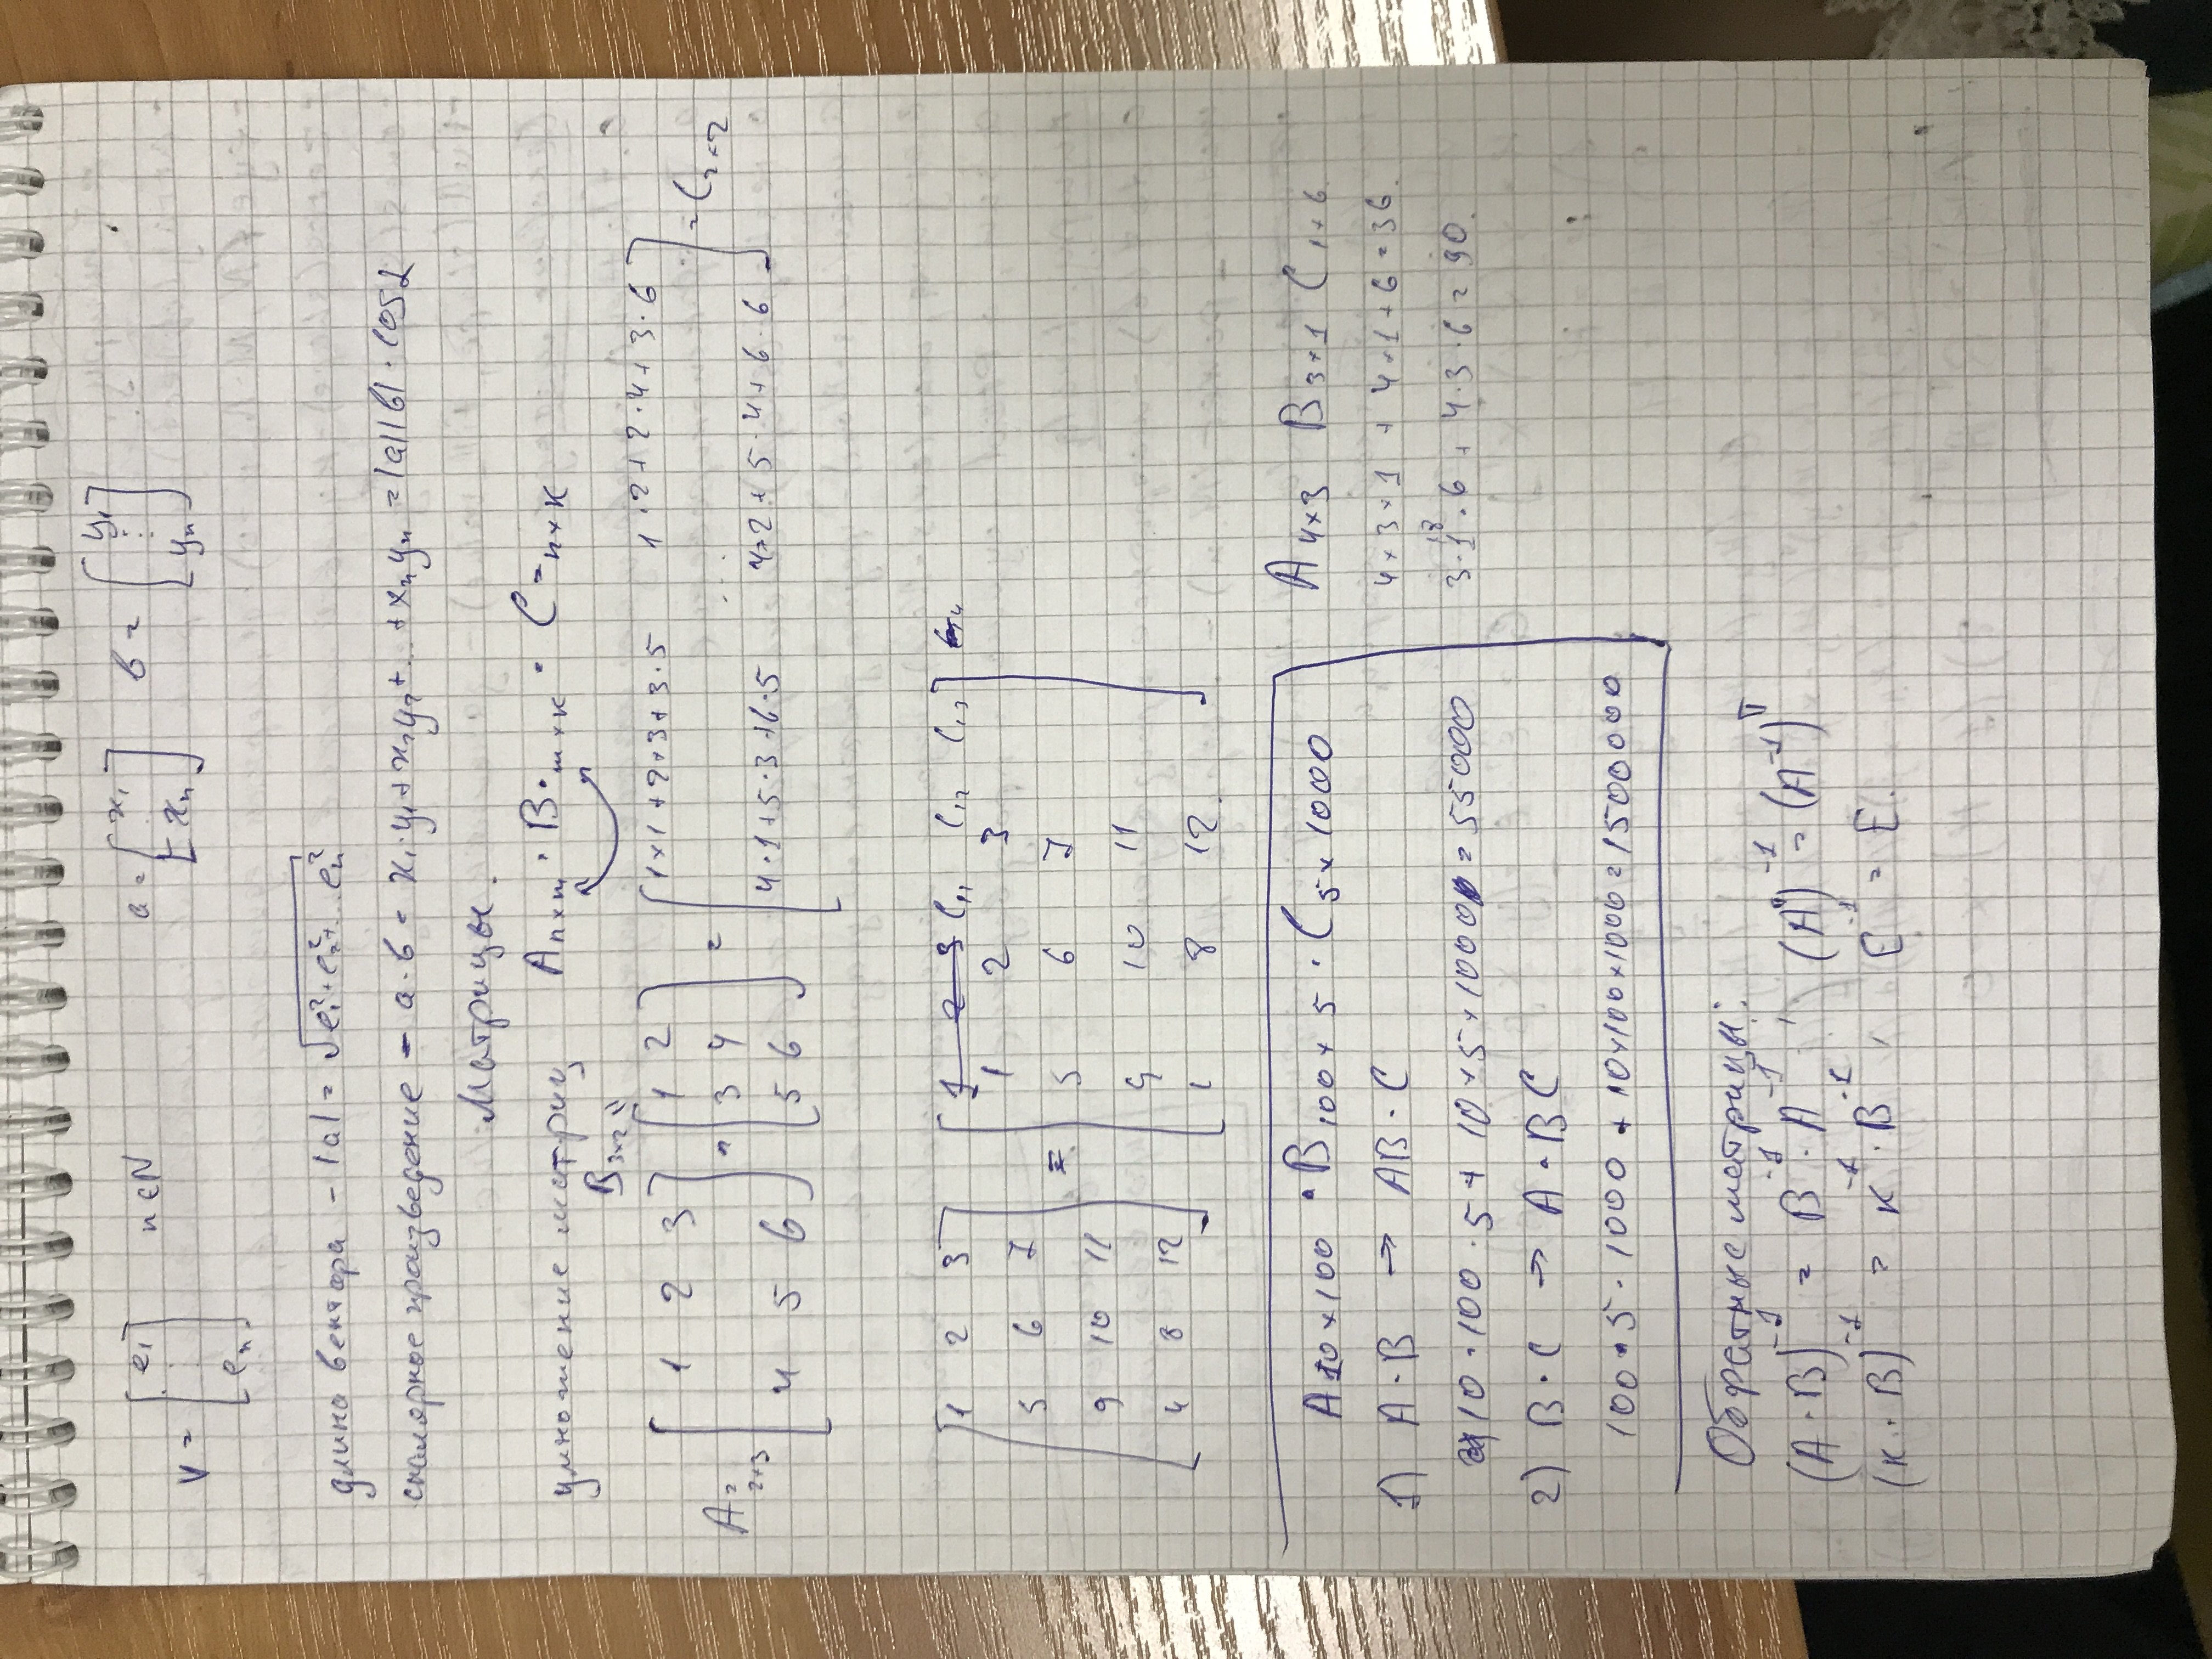 V = [e₁ ⋮ eₙ] n ∈ N a = [x₁ ⋮ xₙ] в = [y₁ ⋮ yₙ]
длина вектора - |a| = √e₁² + e₂² + ... eₙ²
скалярное произведение - a · в = x₁·y₁ + x₂y₂ + ... + xₙyₙ = |a||в| · cos α
Матрицы.
умножение матриц Aₙₓₘ · B·ₘₓₖ · C =ₙₓₖ
B₃ₓ₂ =
A =₂ₓ₃
[1 2 3] · [1 2] = [1×1+2×3+3·5 1·2+2·4+3·6] = C₂ₓ₂
[3 4] ...
[4 5 6] [5 6] [4·1+5·3+6·5 4×2+5·4+6·6]
[1 2 3] = [1 2 3 C₁₁ C₁₂ C₁₃]
1 2 3
5 6 7 5 6 7
9 10 11 9 10 11
4 8 12 1 8 12.
A10×100 · B100×5 · C5×1000
1) A·B → AB·C
10·100·5 + 10×5×1000 = 55000
2) B·C → A·BC
100·5·1000 + 10×100×1000 = 1500000
A4×3 B3×1 C1×6
4×3×1 + 4×1×6 = 36.
18
3·1·6 + 4·3·6 = 90.
Обратные матрицы:
(A·B)⁻¹ = B⁻¹·A⁻¹ ; (Aᵀ)⁻¹ = (A⁻¹)ᵀ
(к·B)⁻¹ = к⁻¹·B⁻¹, E⁻¹ = E.